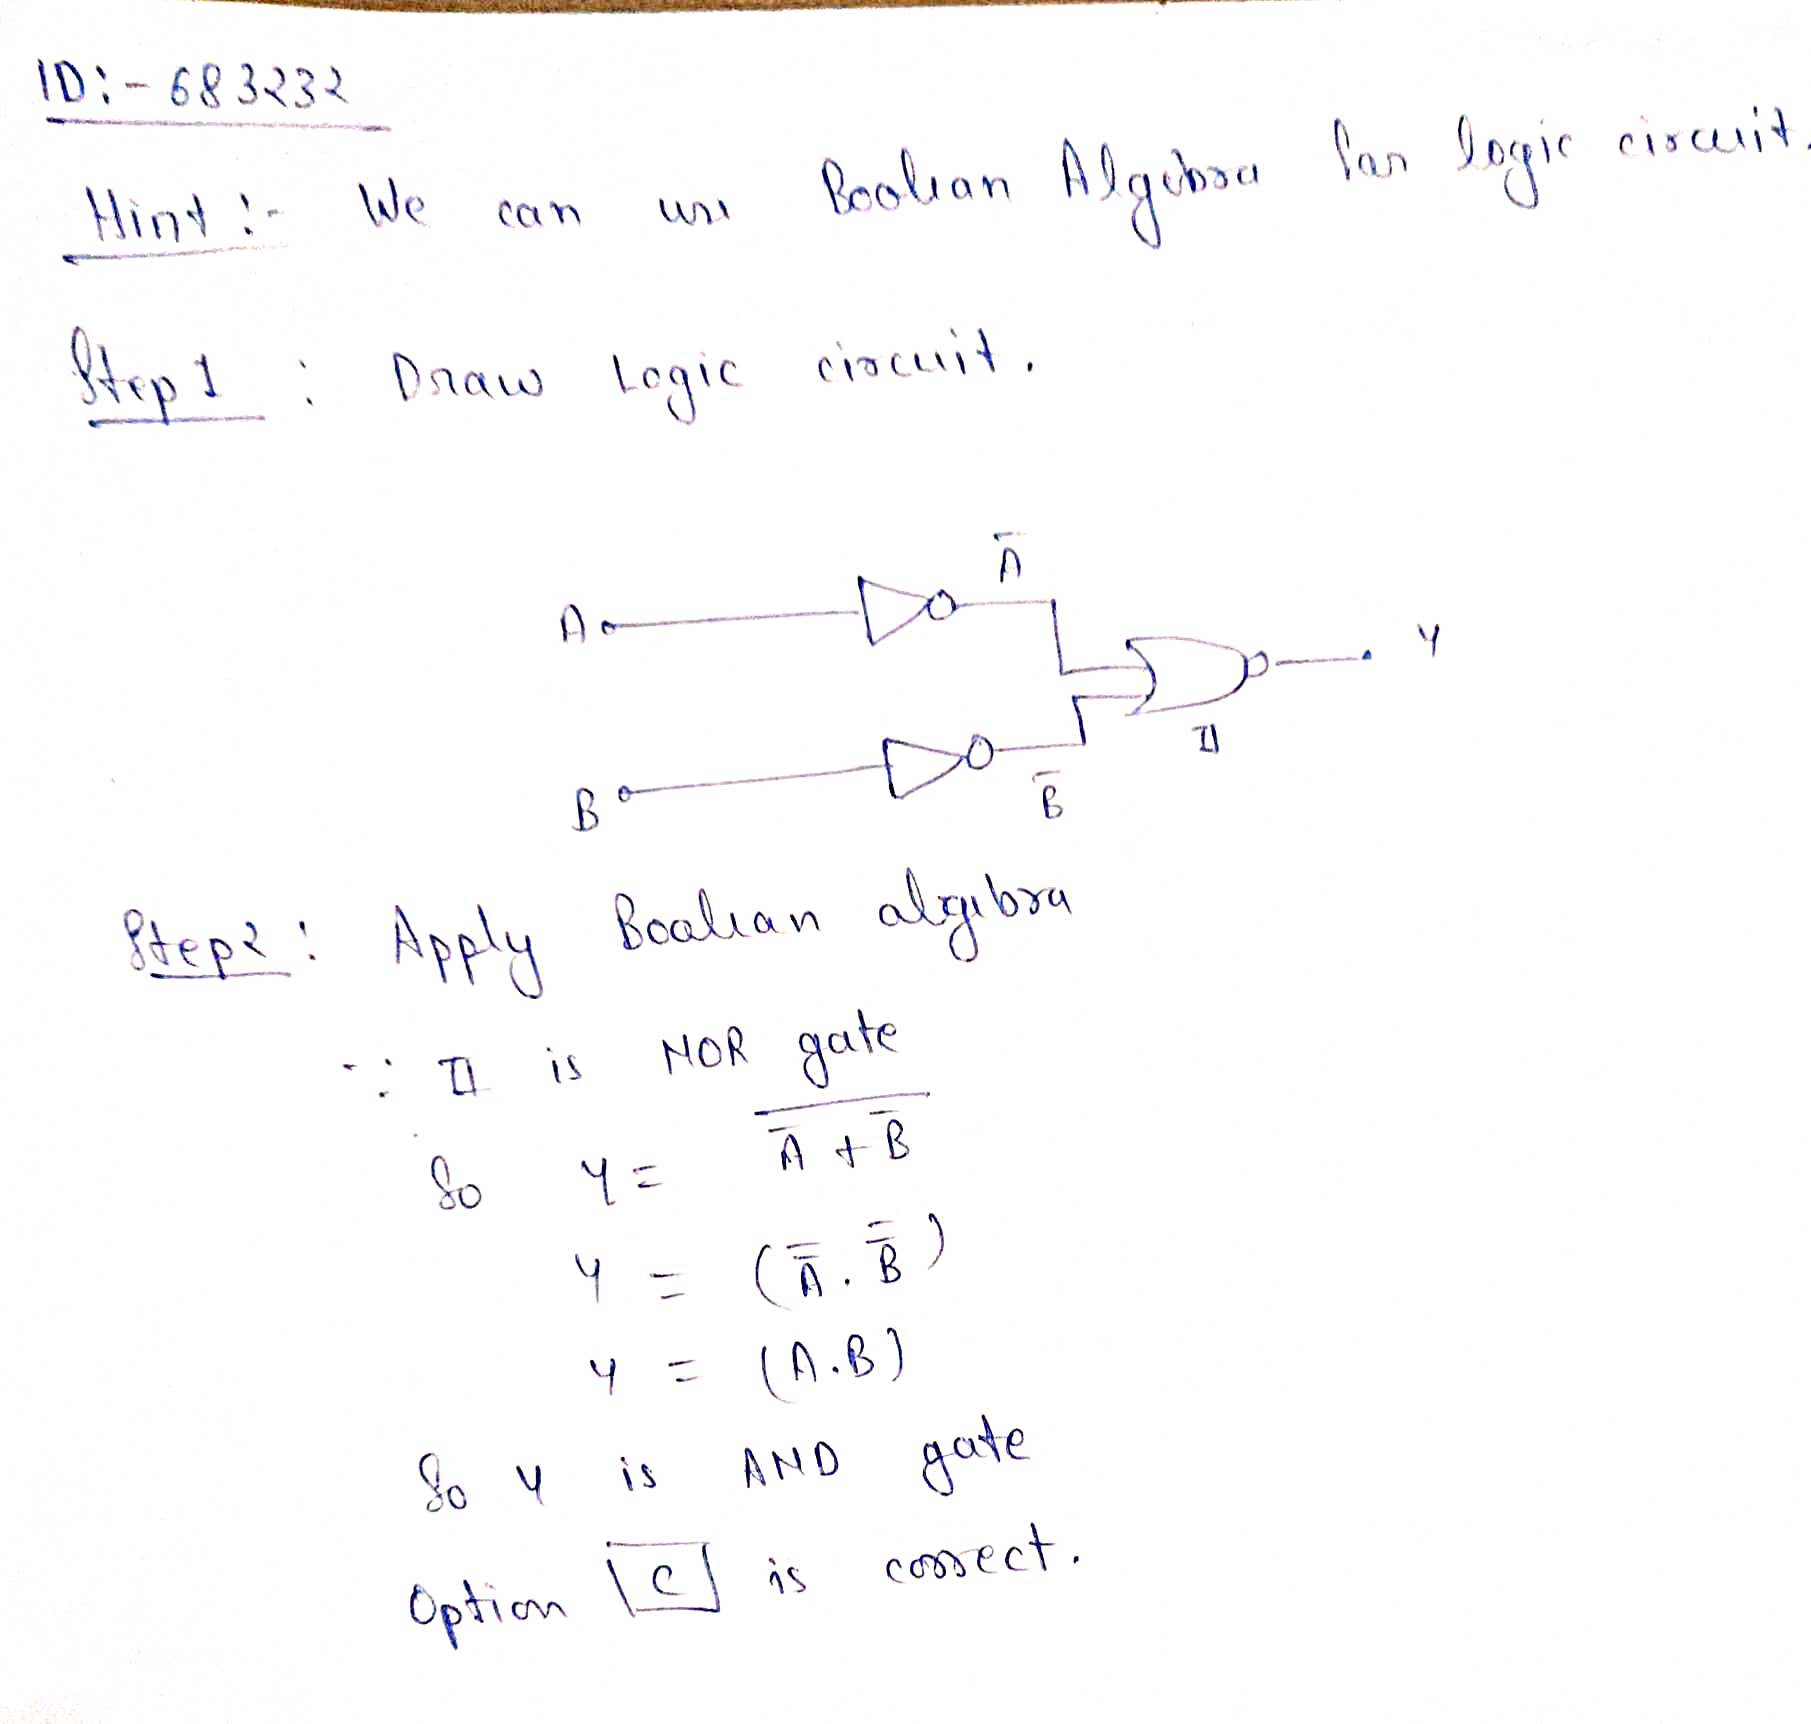 ID:- 683232
Hint:- We can use Boolean Algebra for logic circuit.
Step 1 : Draw Logic circuit.
Ā
A
Y
II
B
B̄
Step 2 : Apply Boolean algebra
∵ II is NOR gate
So Y = \overline{Ā + B̄}
Y = (A̿ . B̿)
Y = (A.B)
So Y is AND gate
Option C is correct.